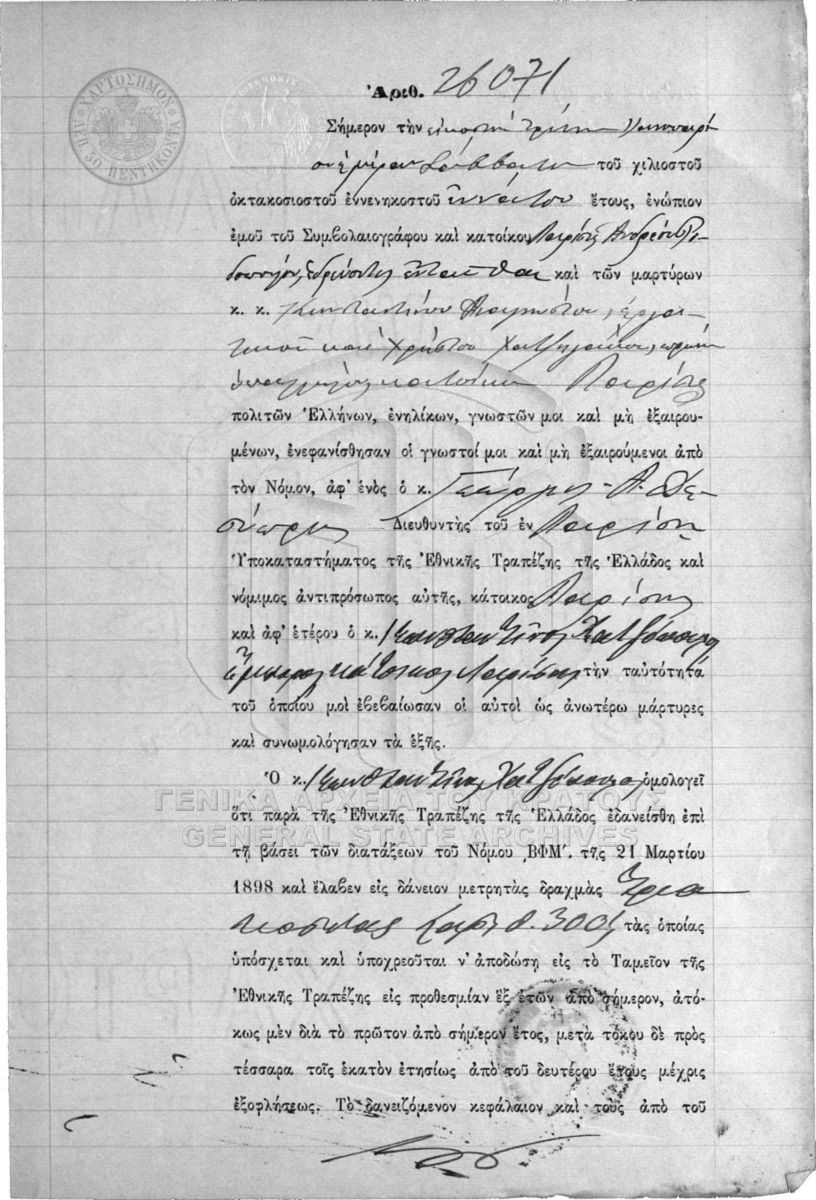 ΧΑΡΤΟΣΗΜΟΝ
ΛΕΠ. 50 ΠΕΝΤΗΚΟΝΤΑ
Ἀριθ. 26071
Σήμερον τὴν εἰκοστὴν τρίτην Ἰανουαρί
ου ἡμέραν Σάββατον τοῦ χιλιοστοῦ
ὀκτακοσιοστοῦ ἐννενηκοστοῦ ἐννάτου ἔτους, ἐνώπιον
ἐμοῦ τοῦ Συμβολαιογράφου καὶ κατοίκου Λαρίσης Ἀνδρέου
ἑδρεύοντος ἐνταῦθα καὶ τῶν μαρτύρων
κ. κ. Κωνσταντίνου
καὶ Χρήστου
κατοίκων Λαρίσης
πολιτῶν Ἑλλήνων, ἐνηλίκων, γνωστῶν μοι καὶ μὴ ἐξαιρου-
μένων, ἐνεφανίσθησαν οἱ γνωστοί μοι καὶ μὴ ἐξαιρούμενοι ἀπὸ
τὸν Νόμον, ἀφ' ἑνὸς ὁ κ. Γεώργιος Α.
Διευθυντὴς τοῦ ἐν Λαρίσῃ
Ὑποκαταστήματος τῆς Ἐθνικῆς Τραπέζης τῆς Ἑλλάδος καὶ
νόμιμος ἀντιπρόσωπος αὐτῆς, κάτοικος Λαρίσης
καὶ ἀφ' ἑτέρου ὁ κ. Κωνσταντῖνος Χατζόπουλος
ἔμπορος κάτοικος Λαρίσης τὴν ταὐτότητά
τοῦ ὁποίου μοὶ ἐβεβαίωσαν οἱ αὐτοὶ ὡς ἀνωτέρω μάρτυρες
καὶ συνωμολόγησαν τὰ ἑξῆς.
Ὁ κ. Κωνσταντῖνος Χατζόπουλος ὁμολογεῖ
ΓΕΝΙΚΑ ΑΡΧΕΙΑ ΤΟΥ ΚΡΑΤΟΥΣ
ὅτι παρὰ τῆς Ἐθνικῆς Τραπέζης τῆς Ἑλλάδος ἐδανείσθη ἐπὶ
GENERAL STATE ARCHIVES
τῇ βάσει τῶν διατάξεων τοῦ Νόμου ͵ΒΦΜ΄. τῆς 21 Μαρτίου
1898 καὶ ἔλαβεν εἰς δάνειον μετρητὰς δραχμὰς τρια
κοσίας (ἀριθ. 300) τὰς ὁποίας
ὑπόσχεται καὶ ὑποχρεοῦται ν' ἀποδώσῃ εἰς τὸ Ταμεῖον τῆς
Ἐθνικῆς Τραπέζης εἰς προθεσμίαν ἓξ ἐτῶν ἀπὸ σήμερον, ἀτό-
κως μὲν διὰ τὸ πρῶτον ἀπὸ σήμερον ἔτος, μετὰ τόκου δὲ πρὸς
τέσσαρα τοῖς ἑκατὸν ἐτησίως ἀπὸ τοῦ δευτέρου ἔτους μέχρις
ἐξοφλήσεως. Τὸ δανειζόμενον κεφάλαιον καὶ τοὺς ἀπὸ τοῦ